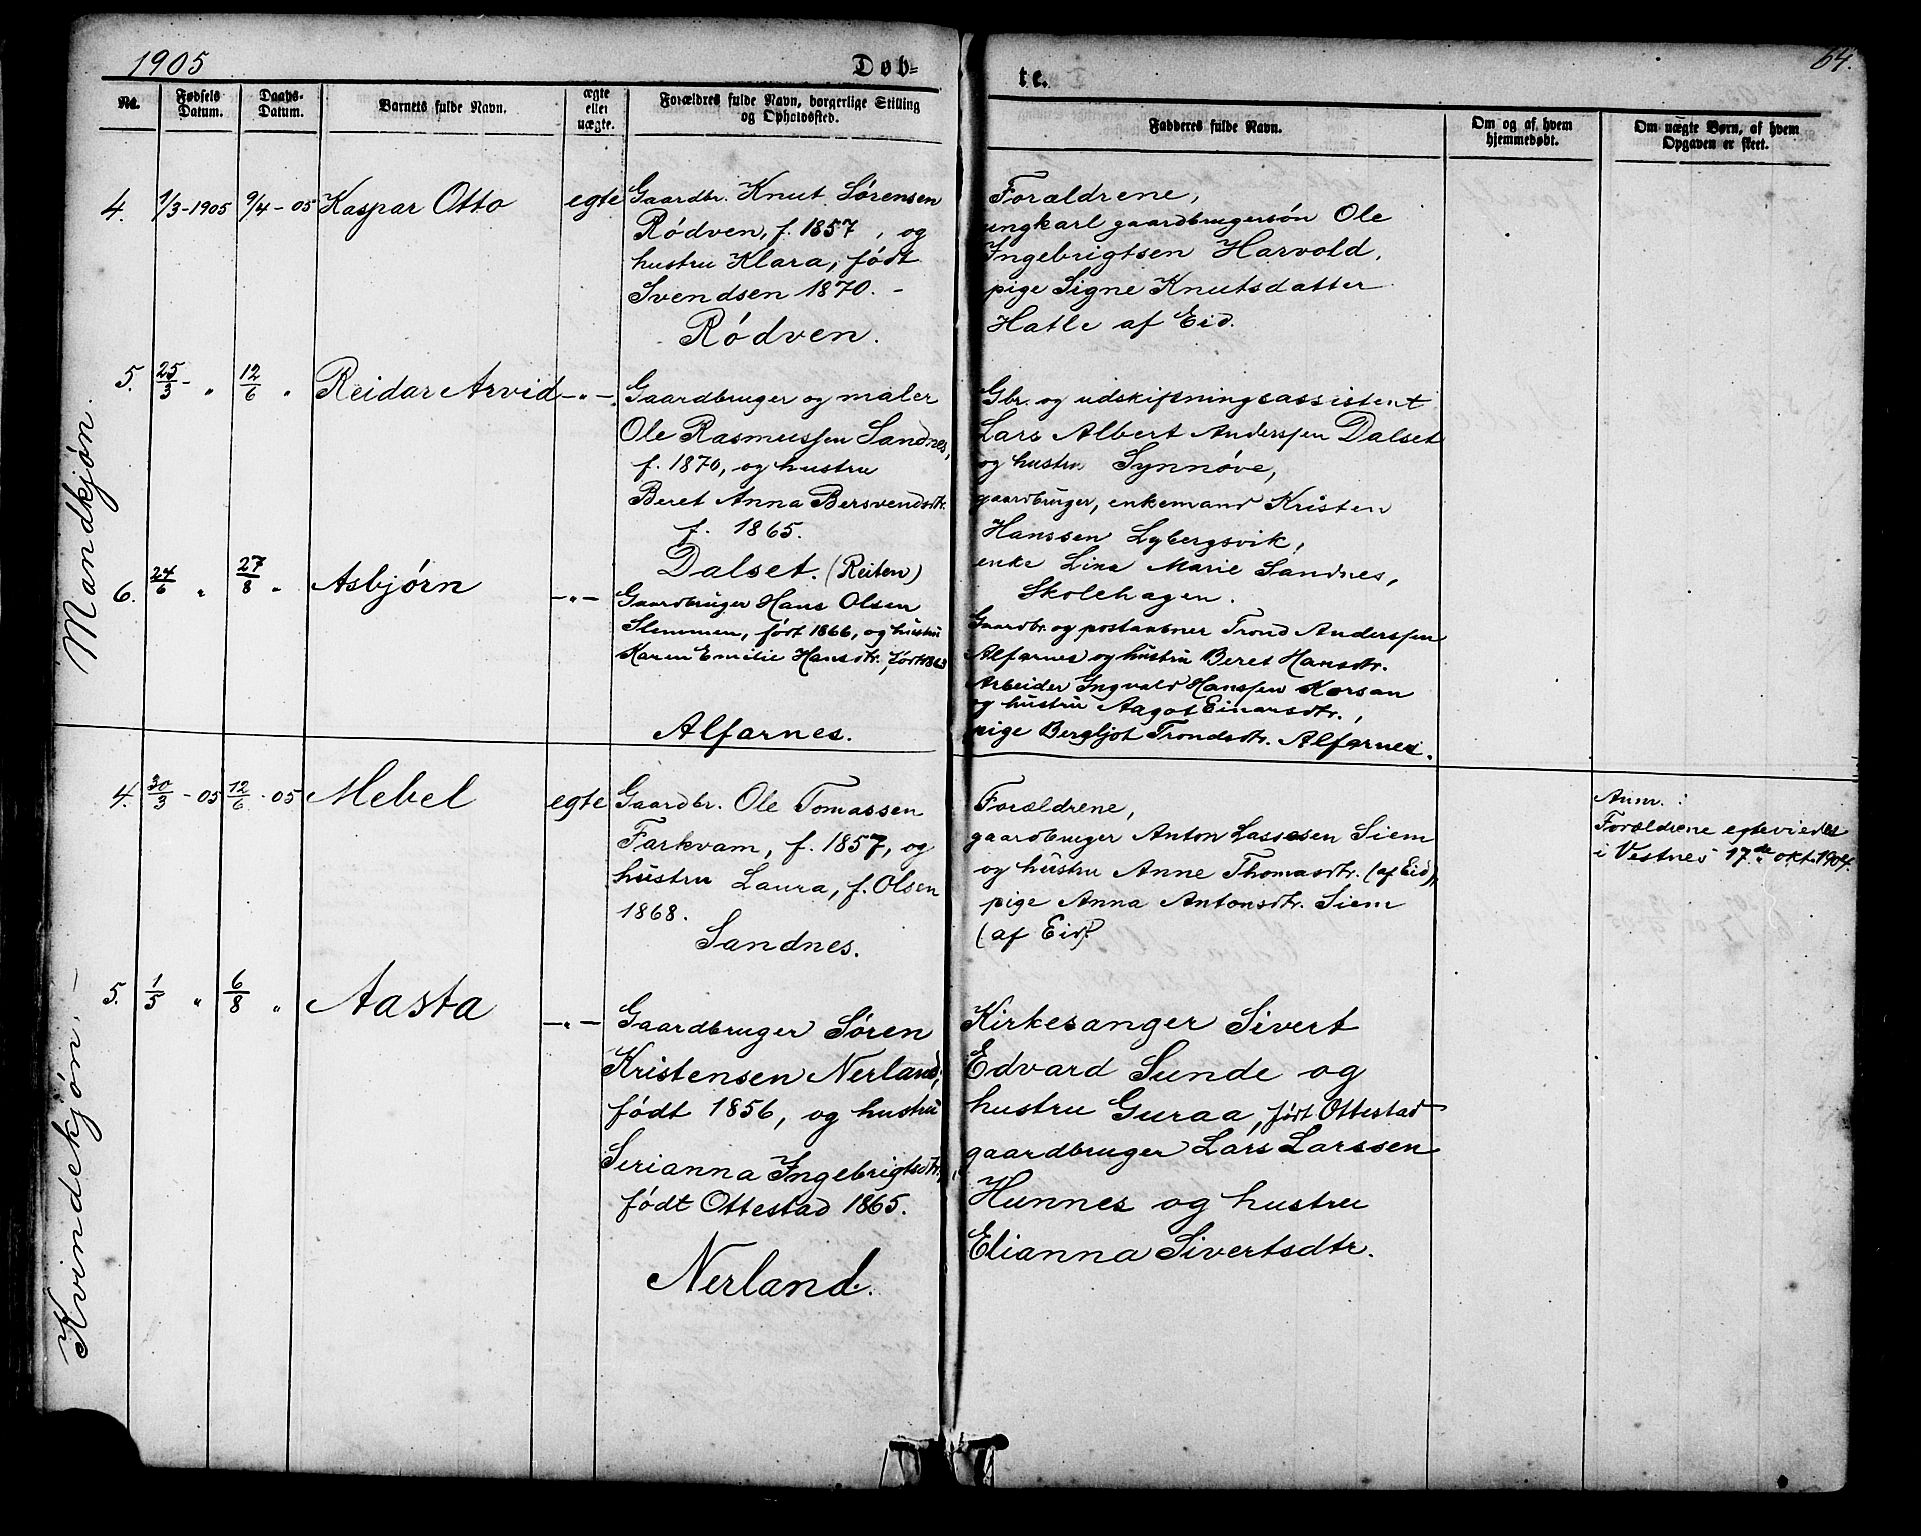 1905
Døb=
te.
64.
No.
Fødsels Datum.
Daabs- Datum.
Barnets fulde Navn.
ægte eller uægte.
Forældres fulde Navn, borgerlige Stilling og Opholdssted.
Faddernes fulde Navn.
Om og af hvem hjemmedøbt.
Om uægte Børn, af hvem Opgaven er skeet.
Mandkjøn.
4. 1/3-1905 9/4-05 Kaspar Otto egte
Gaardbr. Knut Sørensen
Rødven, f. 1857, og
hustru Klara, født
Svendsen 1870. -
Rødven.
Forældrene,
ungkarl gaardbrugersøn Ole
Ingebrigtsen Harvold,
pige Signe Knutsdatter
Hatle af Eid.
5. 25/3 - " 12/6 " Reidar Arvid -"-
Gaardbruger og maler
Ole Rasmussen Sandnes,
f. 1870, og hustru
Beret Anna Bersvendsdtr.
f. 1865.
Dalset. (Reiten)
Gbr. og udskiftningsassistent
Lars Albert Anderssen Dalset
og hustru Synnøve,
gaardbruger, enkemand Kristen
Hanssen Lybergsvik,
enke Lina Marie Sandnes,
Skolehagen.
6. 24/6 " 27/8 " Asbjørn -"-
Gaardbruger Hans Olsen
Slemmen, født 1866, og hustru
Karen Emilie Hansdtr., født 1863
Alfarnes.
Gaardbr. og postaabner Trond Anderssen
Alfarnes og hustru Beret Hansdtr.
Arbeider Ingvald Hanssen Korsan
og hustru Aagot Einarsdtr.,
pige Bergljot Trondsdtr. Alfarnes.
Kvindekjøn. -
4. 30/3 - 05 12/6 - 05 Mebel egte
Gaardbr. Ole Tomassen
Farkvam, f. 1857, og
hustru Laura, f. Olsen
1868.
Sandnes.
Forældrene,
gaardbruger Anton Lassesen Siem
og hustru Anne Thomasdtr. (af Eid),
pige Anna Antonsdtr. Siem
(af Eid).
Anm. :
Forældrene egteviedes
i Vestnes 17de okt. 1904.
5. 1/5 " 6/8 " Aasta -"-
Gaardbruger Søren
Kristensen Nerland,
født 1856, og hustru
Serianna Ingebrigtsdtr.,
født Ottestad 1865.
Nerland.
Kirkesanger Sivert
Edvard Sunde og
hustru Guraa, født Ottestad
gaardbruger Lars Larssen
Hunnes og hustru
Elianna Sivertsdtr.